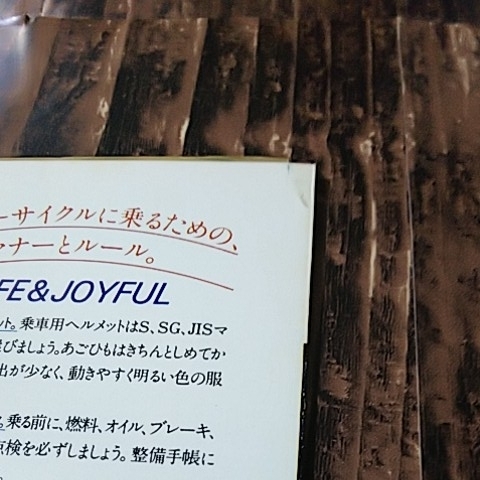 ーサイクルに乗るための、
ナーとルール。
FE&JOYFUL
ット。乗車用ヘルメットはS、SG、JISマ
びましょう。あごひもはきちんとしめてか
出が少なく、動きやすく明るい色の服
乗る前に、燃料、オイル、ブレーキ、
点検を必ずしましょう。整備手帳に